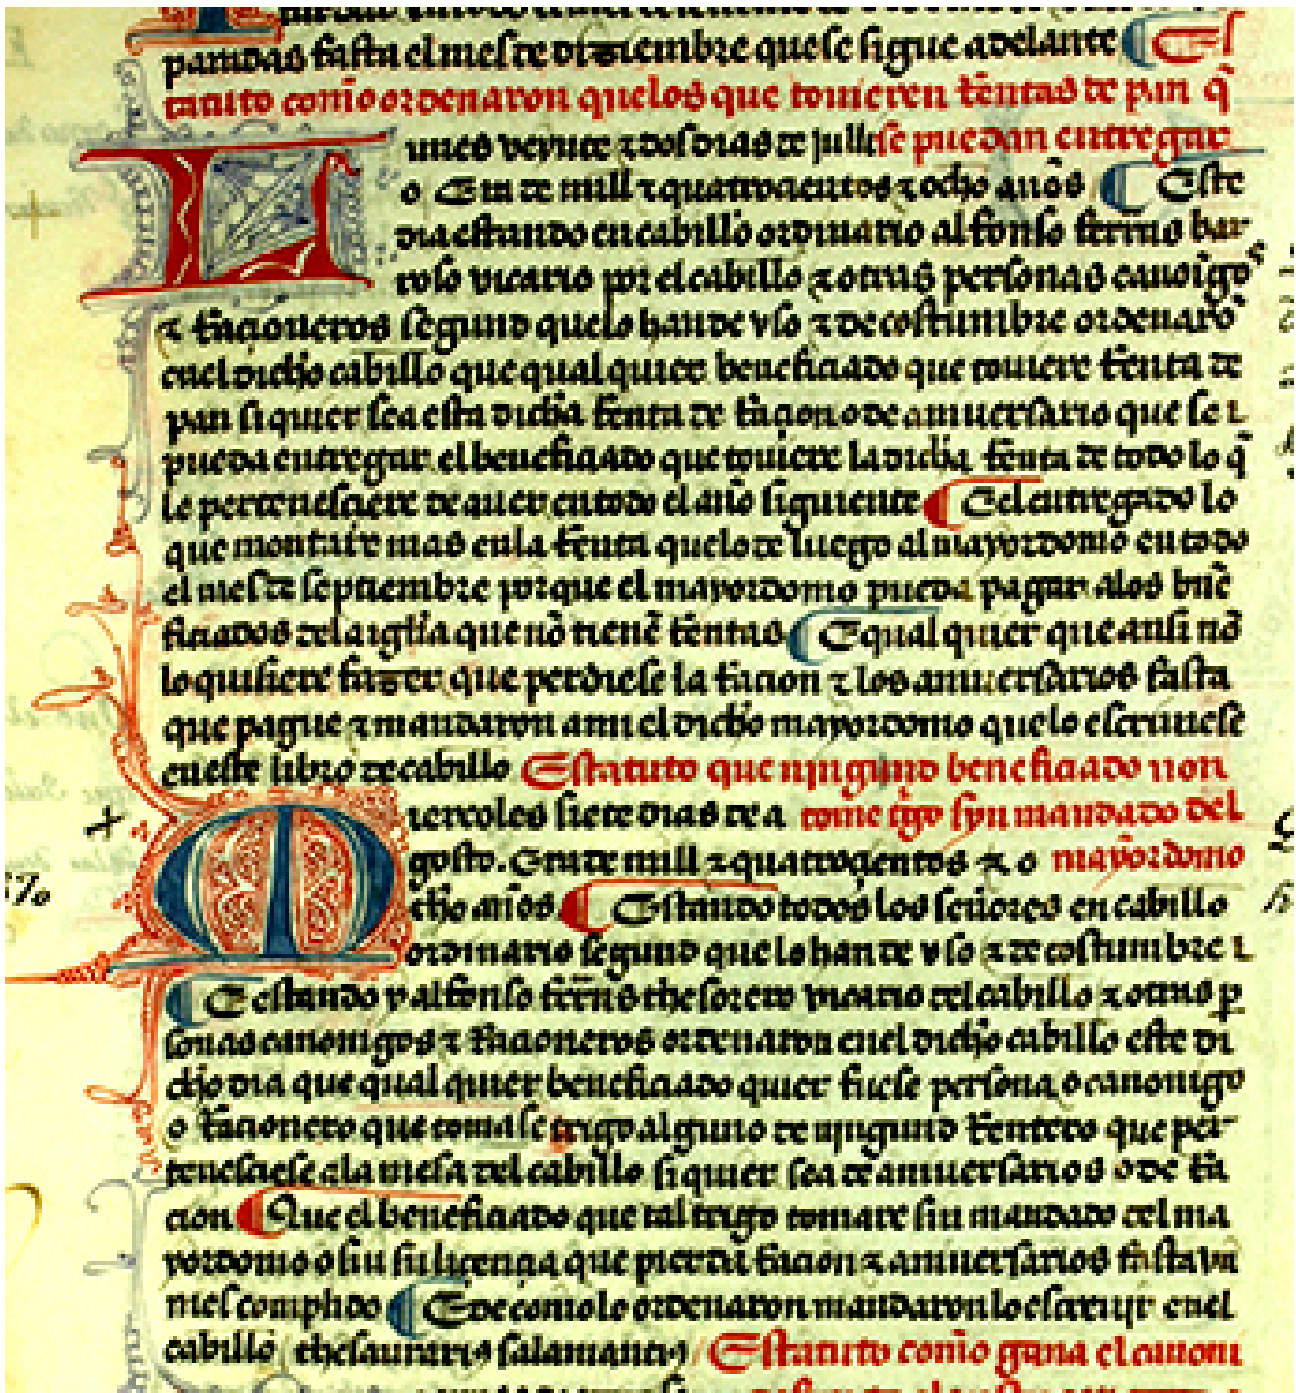 partidas fasta el mes de disiembre que se sigue adelante Es
tatuto com̃o ordenaron que los que touieren rrentas de pan q̃
Lunes veynte τ dos dias de julli se puedan entregar
o Era de mill τ quatroçientos τ ocho años Este
dia estando en cabillo ordinario alfonso ferrñs bar
roso vicario por el cabillo τ otras personas canoigos
τ rraçioneros segund que lo han de vso τ de costumbre ordenarõ
en el dicho cabillo que qual quier beneficiado que touiere rrenta de
pan si quier sea esta dicha rrenta de rraçion o de aniuersario que se
pueda entregar el beneficiado que touiere la dicha rrenta de todo lo q̃
le pertenesçiere de auer en todo el año siguiente E el entregado lo
que montare mas en la rrenta que lo de luego al mayordomo en todo
el mes de septiembre porque el mayordomo pueda pagar a los bñe
ficiados de la igl̃ia que nõ tienẽ rrentas E qual quier que ansi nõ
lo quisiere fazer que perdiese la rraçion τ los aniuersarios fasta
que pague τ mandaron a mi el dicho mayordomo que lo escriuiese
en este libro de cabillo Estatuto que ningund beneficiado non
Miercoles siete dias de a tome t̃go syn mandado del
gosto. Era de mill τ quatroçientos τ o mayordomo
cho años Estando todos los señores en cabillo
ordinario segund que lo han de vso τ de costumbre
E estando y alfonso ferrñs thesorero vicario del cabillo τ otras per
sonas canonigos τ rraçioneros ordenaron en el dicho cabillo este di
cho dia que qual quier beneficiado quier fuese persona o canonigo
o rraçionero que tomase trigo alguno de ningund rrentero que per
tenesçiese a la mesa del cabillo si quier sea de aniuersarios o de rra
çion Que el beneficiado que tal trigo tomare sin mandado del ma
yordomo o sin su liçençia que pierda rraçion τ aniuersarios fasta vn
mes complido E de como lo ordenaron mandaron lo escriuir en el
cabillo thesaurarius salamantinus Estatuto com̃o gana el canoni